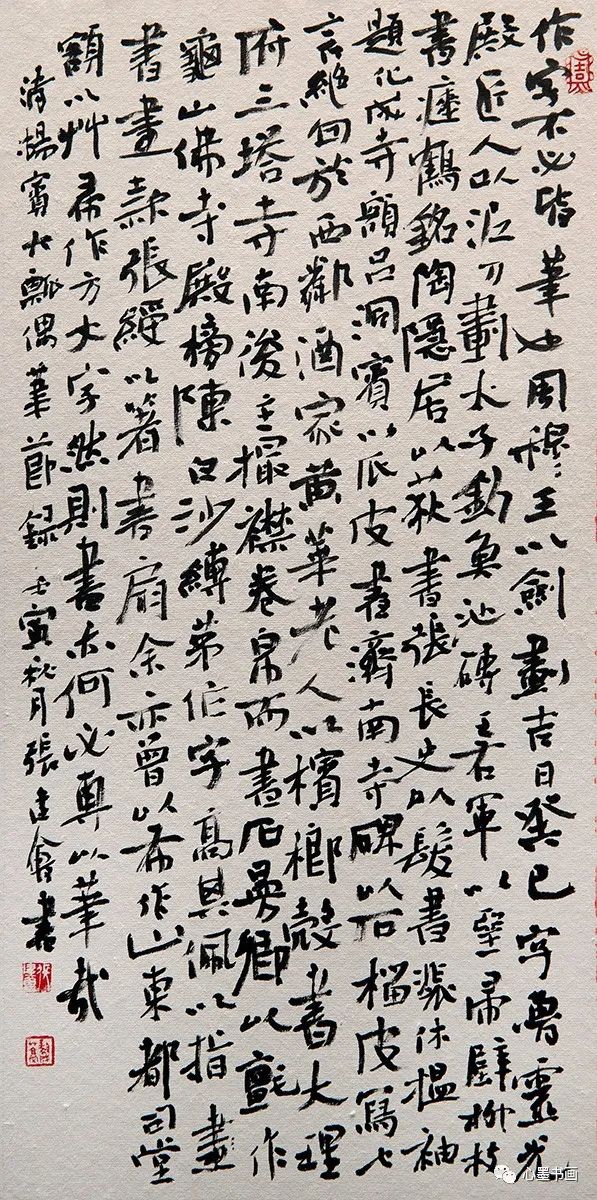 作字不必皆筆也周穆王以劍劃吉日癸巳字魯靈光
殿匠人以泥刀劃太子釣魚池磚王右軍以堊帚壁柳枝
書瘞鶴銘陶隱居以荻書張長史以髮書裴休揾袖
題化成寺額呂洞賓以瓜皮書濟南寺碑以石榴皮寫七
言絕句於西鄰酒家黃華老人以檳榔殼書大理
府三塔寺南後主撮襟卷帛而書石曼卿以氈作
龜山佛寺殿榜陳白沙縛茅作字高其佩以指畫
書畫款張綬以箸書扇余亦曾以布作山東都司堂
額以艸帚作方大字然則書亦何必專以筆哉
清楊賓大瓢偶筆節錄壬寅秋月張建會書
心墨书画